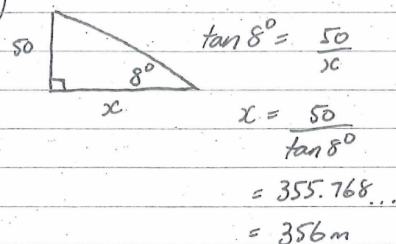 50
8°
x
tan 8° = 50/x
x = 50/tan 8°
= 355.768...
= 356m